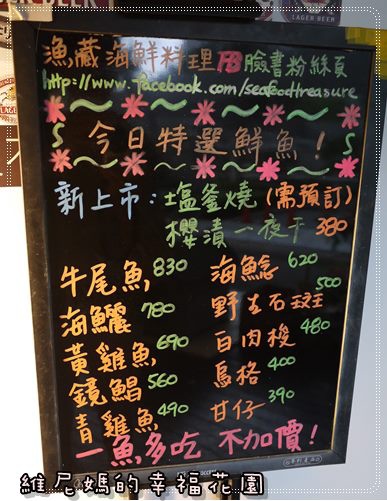 LAGER BEER
漁藏海鮮料理 FB臉書粉絲頁
http://www.facebook.com/seafoodtreasure
今日特選鮮魚！
新上市：塩釜燒(需預訂)
櫻漬一夜干 380
牛尾魚 830 海鯰 620
海鱺 780 野生石斑 500
黃雞魚 690 白肉梭 480
鏡鯧 560 烏格 400
青雞魚 490 甘仔 390
一魚多吃 不加價！
維尼媽的幸福花園